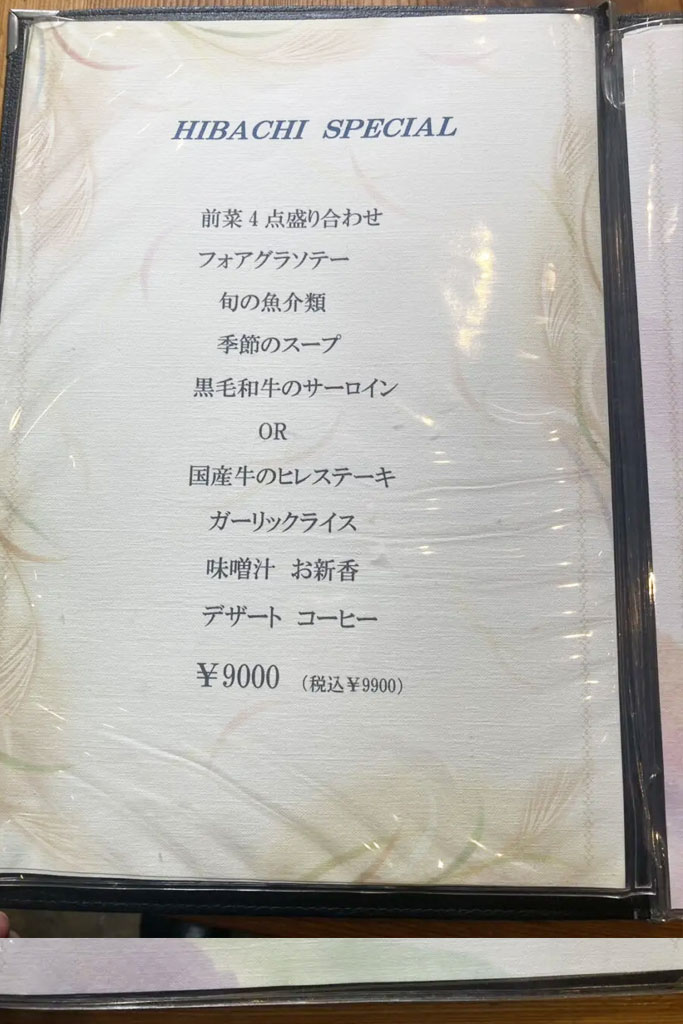 HIBACHI SPECIAL
前菜4点盛り合わせ
フォアグラソテー
旬の魚介類
季節のスープ
黒毛和牛のサーロイン
OR
国産牛のヒレステーキ
ガーリックライス
味噌汁 お新香
デザート コーヒー
￥9000 (税込￥9900)